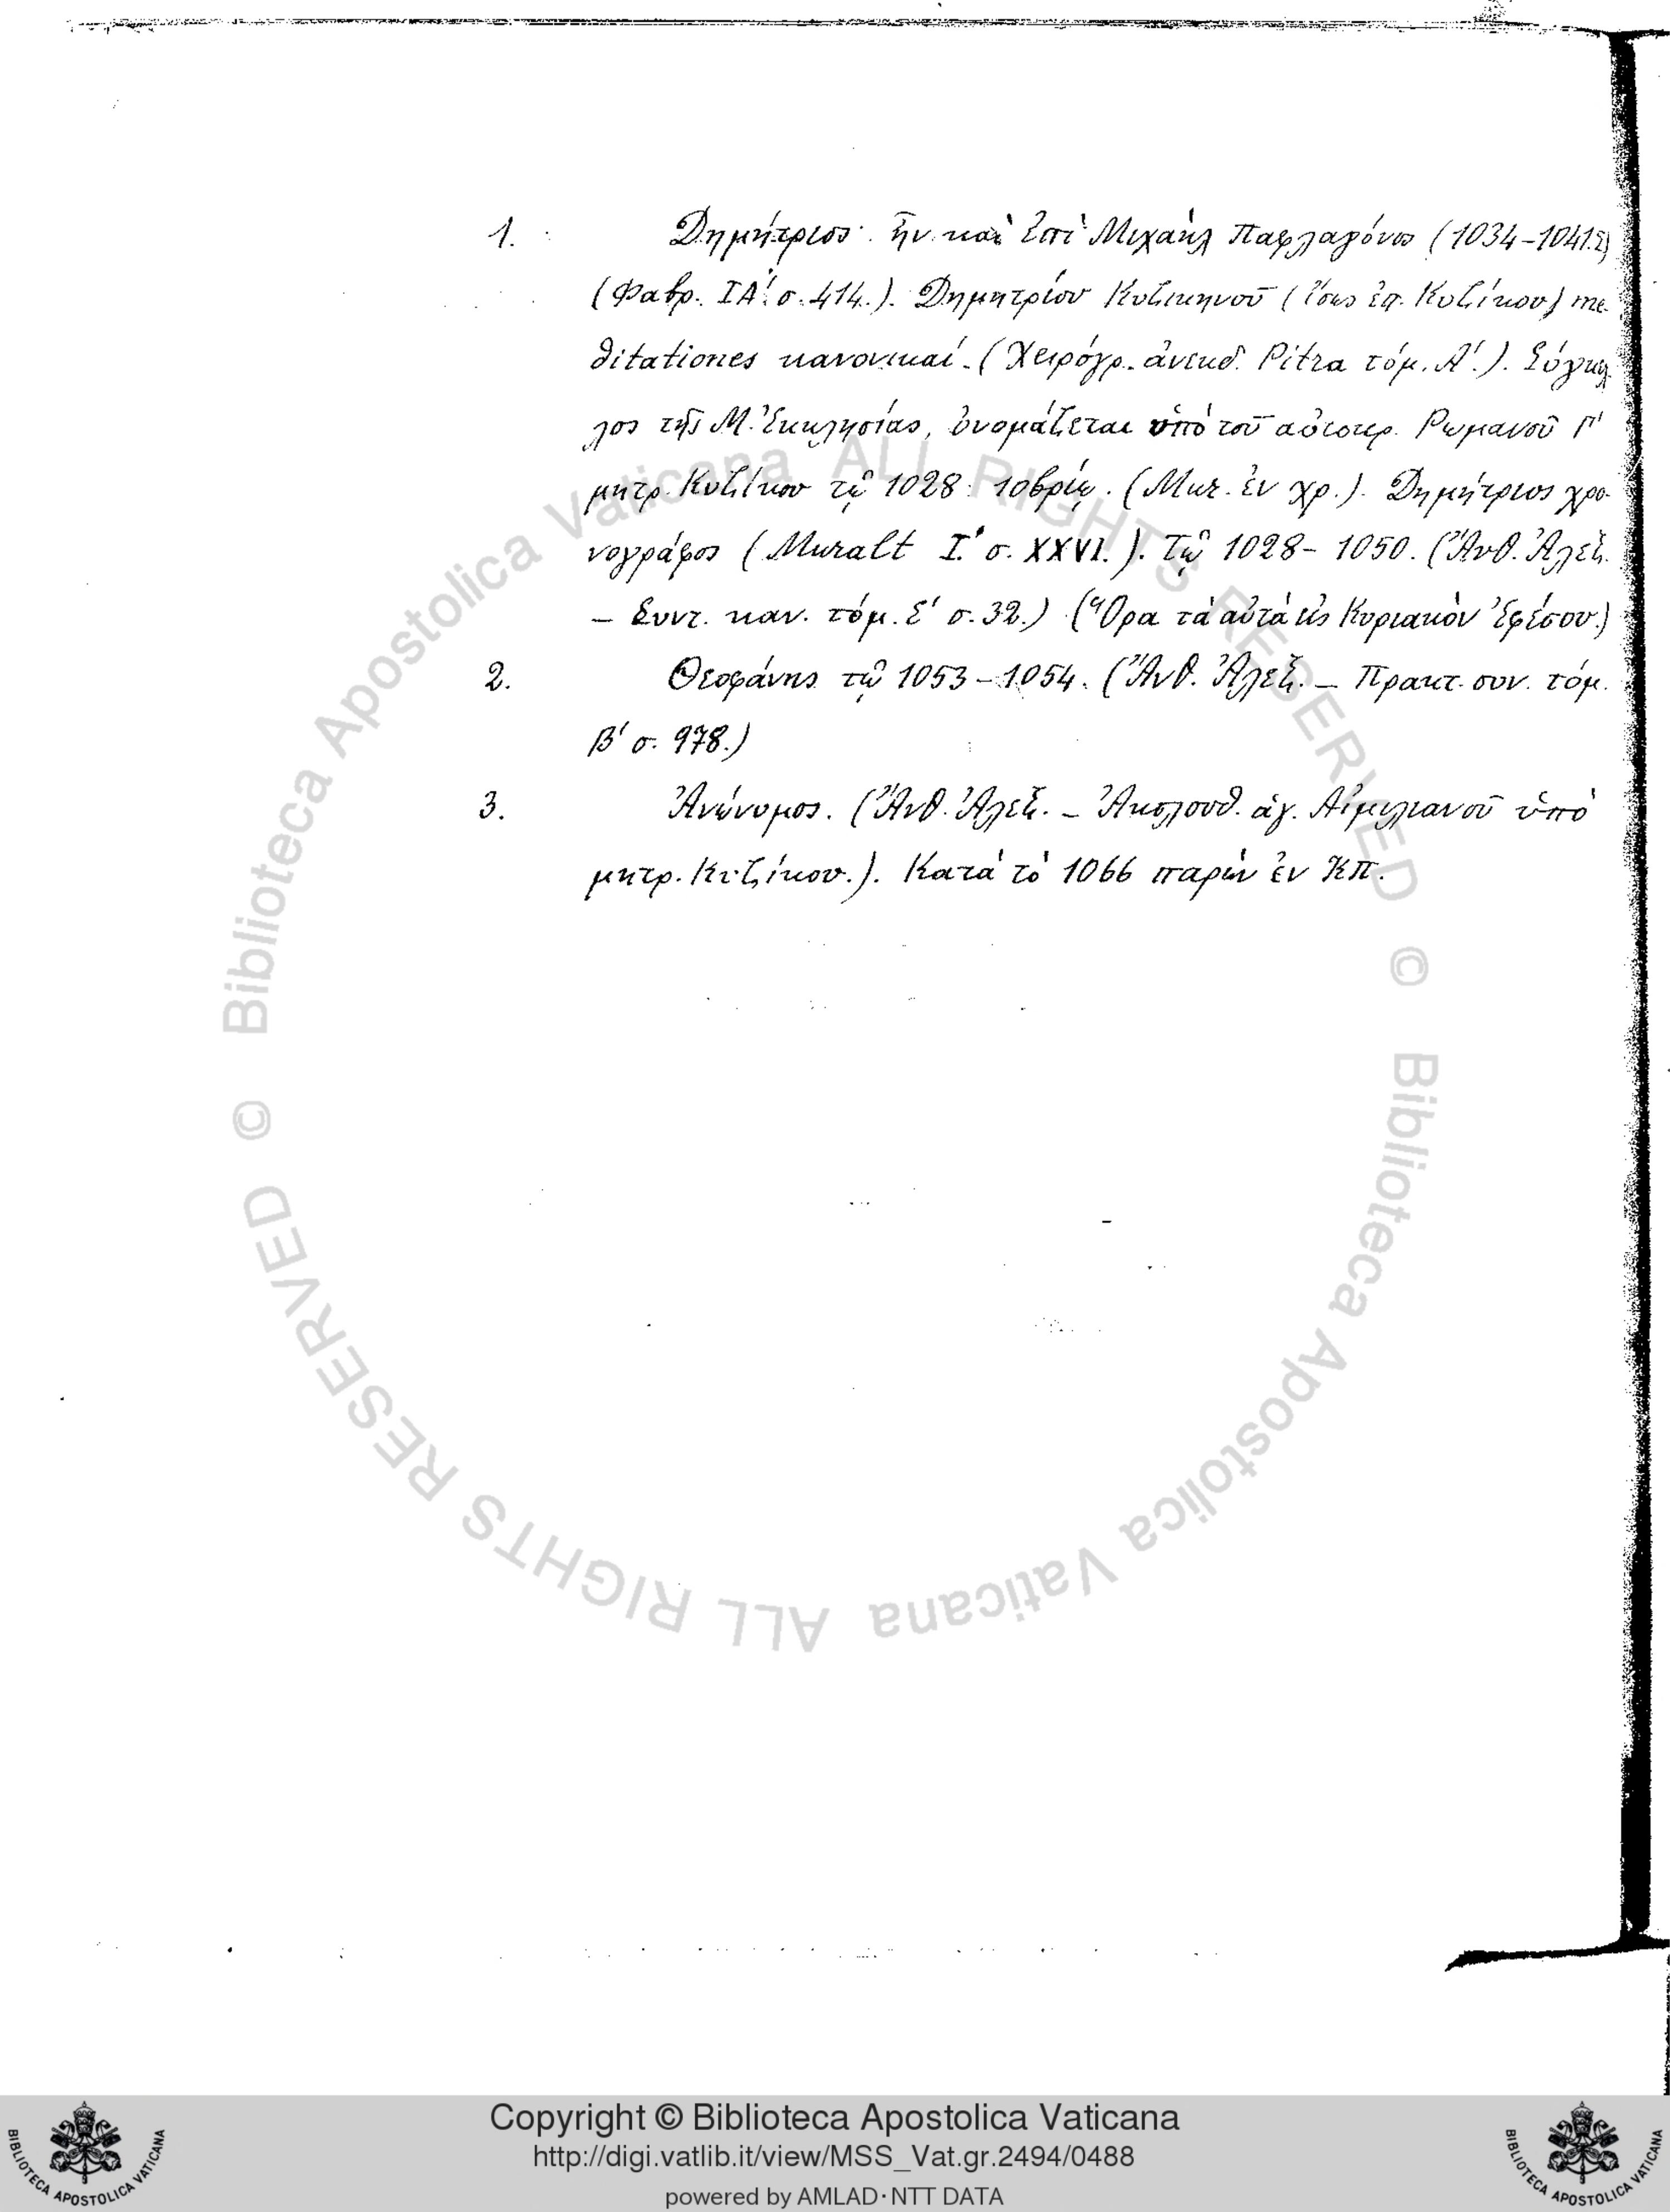 1. Δημήτριος ἦν καὶ ἐπὶ Μιχαὴλ Παφλαγόνος (1034-1041
(Φαβρ. ΙΑ΄. σ. 414.). Δημητρίου Κυζικηνοῦ (ἴσως ἐπ. Κυζίκου) me-
ditationes κανονικαί. (Χειρόγρ. ἀνεκδ. Pitra τόμ. Α΄.). Σύγκελ-
λος τῆς Μ. Ἐκκλησίας, ὀνομάζεται ὑπὸ τοῦ αὐτοκρ. Ρωμανοῦ Γ΄
μητρ. Κυζίκου τῷ 1028 10βρίῳ. (Μur. ἐν χρ.). Δημήτριος χρο-
νογράφος (Muralt I. σ. XXVI.). Τῷ 1028-1050. (Ἄνθ. Ἀλεξ.
– Συντ. καν. τόμ. Ε΄ σ. 32.) (Ὅρα τὰ αὐτὰ εἰς Κυριακὸν Ἐφέσου.)
2. Θεοφάνης τῷ 1053-1054. (Ἄνθ. Ἀλεξ. – Πρακτ. συν. τόμ.
Β΄ σ. 978.)
3. Ἀνώνυμος. (Ἄνθ. Ἀλεξ. – Ἀκολουθ. ἁγ. Αἰμιλιανοῦ ὑπὸ
μητρ. Κυζίκου.). Κατὰ τὸ 1066 παρὼν ἐν ΚΠ.
© Biblioteca Apostolica Vaticana ALL RIGHTS RESERVED
© Biblioteca Apostolica Vaticana ALL RIGHTS RESERVED
Copyright © Biblioteca Apostolica Vaticana
http://digi.vatlib.it/view/MSS_Vat.gr.2494/0488
powered by AMLAD·NTT DATA
BIBLIOTECA APOSTOLICA VATICANA
BIBLIOTECA APOSTOLICA VATICANA